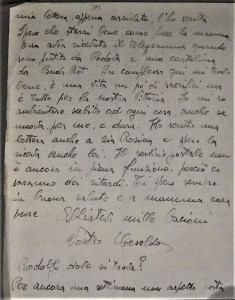 mia lettera appena arrivata l'ho scritta
Spero che starai bene come pure la mamma
avrà ricevuto il telegramma quando
sono partito da Padova e una cartolina
da Budapest. In complesso qui mi trovo
bene, è una vita un po' di sacrifici ma
è tutto per la nostra Vittoria. Io mi so
subito ad ogni cosa, anche se
nuova, per me, e dura. Ho scritto una
lettera anche a e spero la
riceva anche lei. Il servizio postale non
è ancora in pieno funzione, perciò ci
saranno dei ritardi. Ti spero sempre
in buona salute e a mamma cara
pure
mille bacioni
Vostro
Rodolfo dove si trova?
Per ancora una settimana non aspetto posta